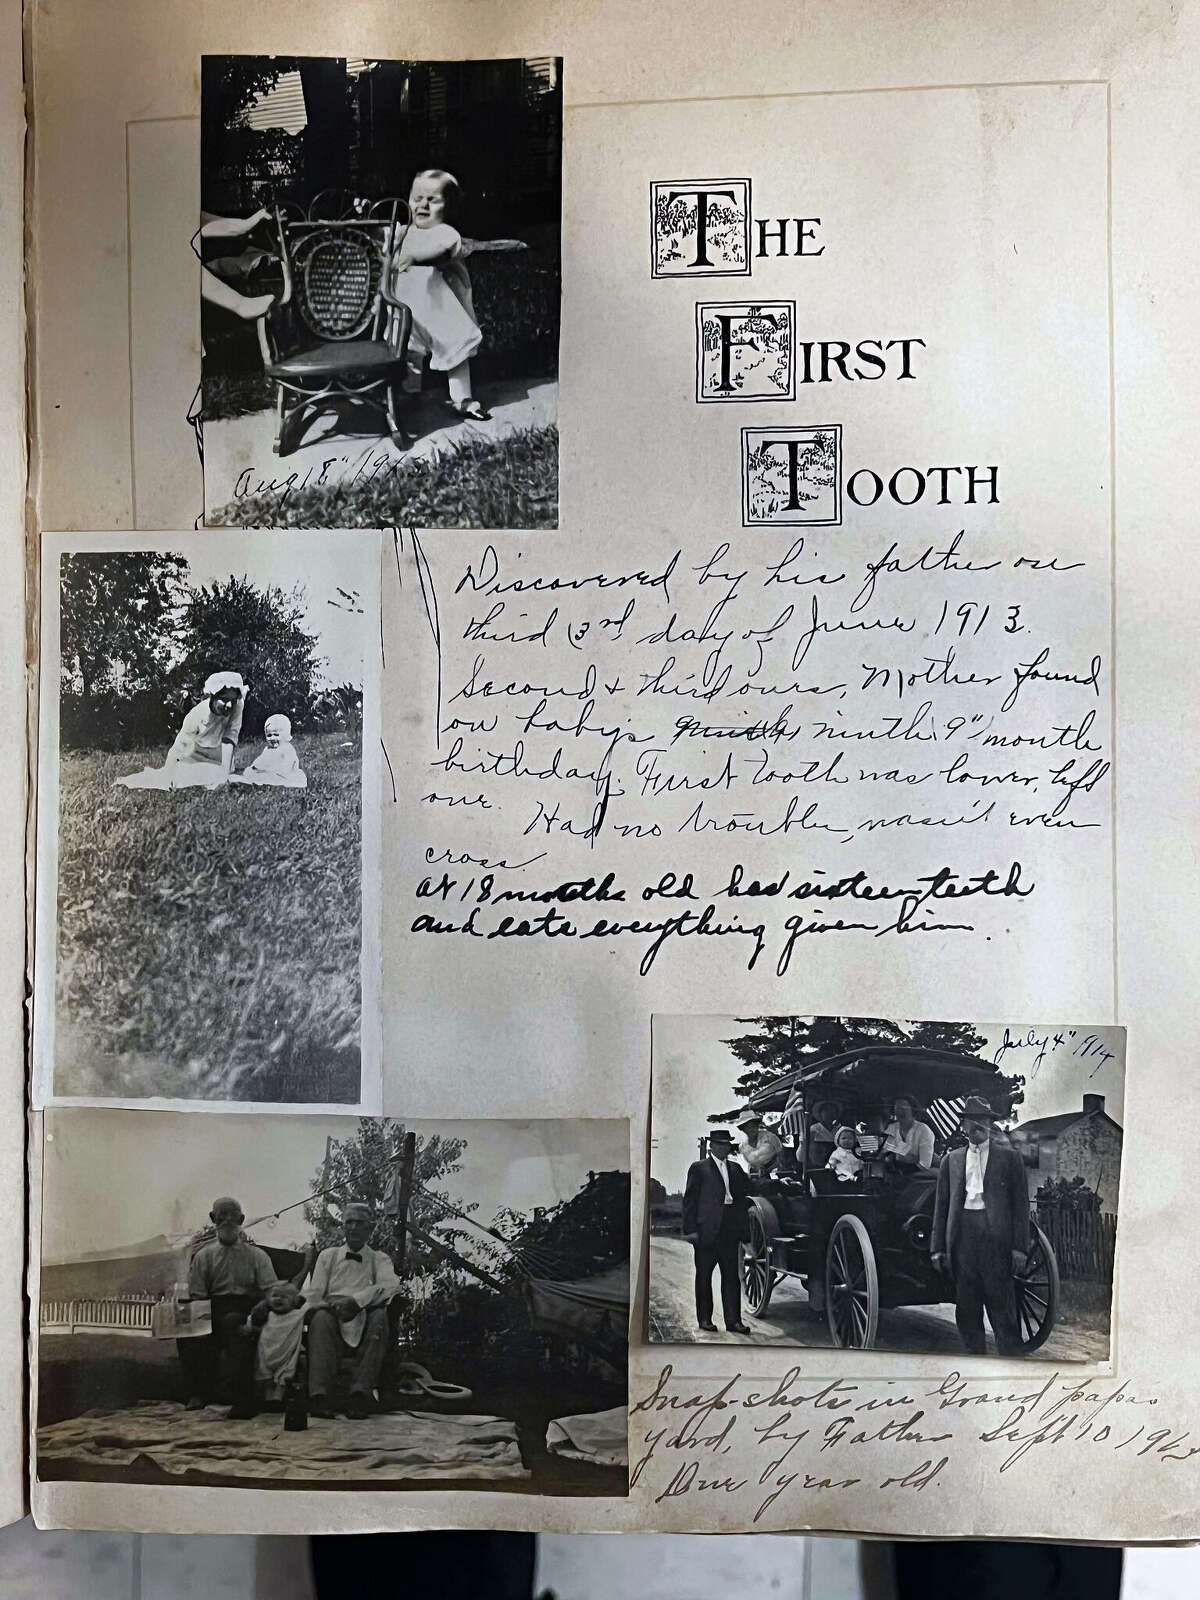 THE
FIRST
TOOTH
Aug 18" 1913
Discovered by his father on
third (3rd day of June 1913.
Second & third ones, Mother found
on baby's ninth 9" month
birthday. First tooth was lower, left
one. Had no trouble, wasn't even
cross.
At 18 months old had sixteen teeth
and eats everything given him.
July 4" 1914
Snap-shots in Grand papas
yard, by Father Sept 10 19
One year old.